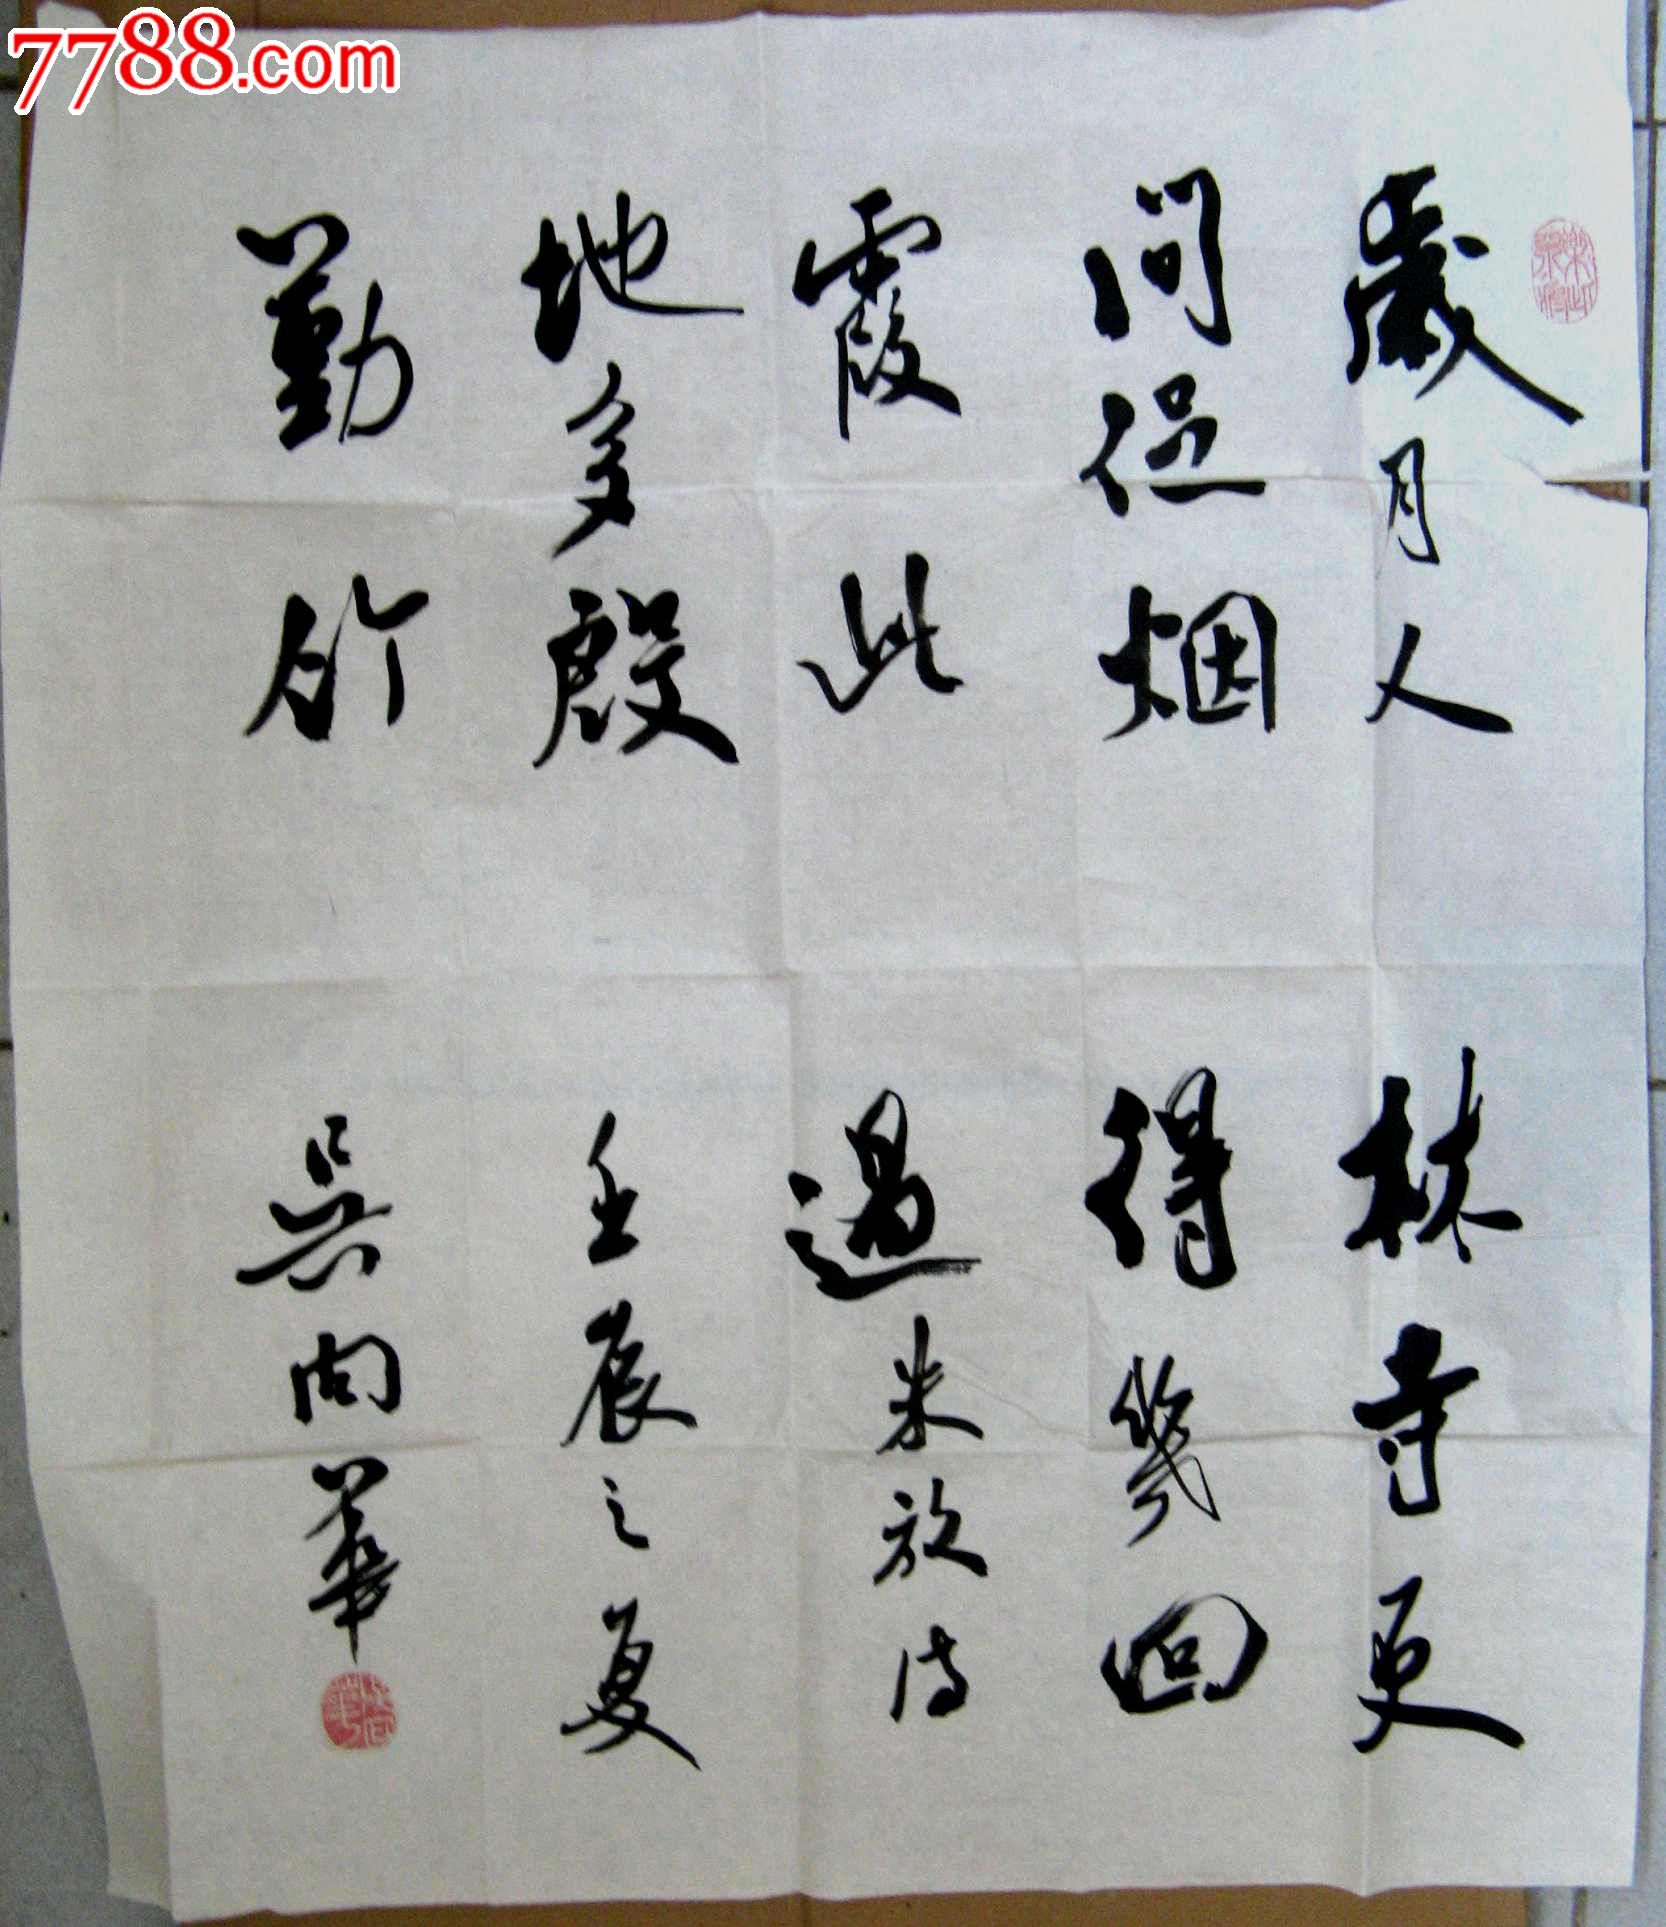 7788.com
歲月人
間促烟
霞此
地多殷
勤竹
林寺更
得幾回
過朱放诗
壬辰之夏
吳向華